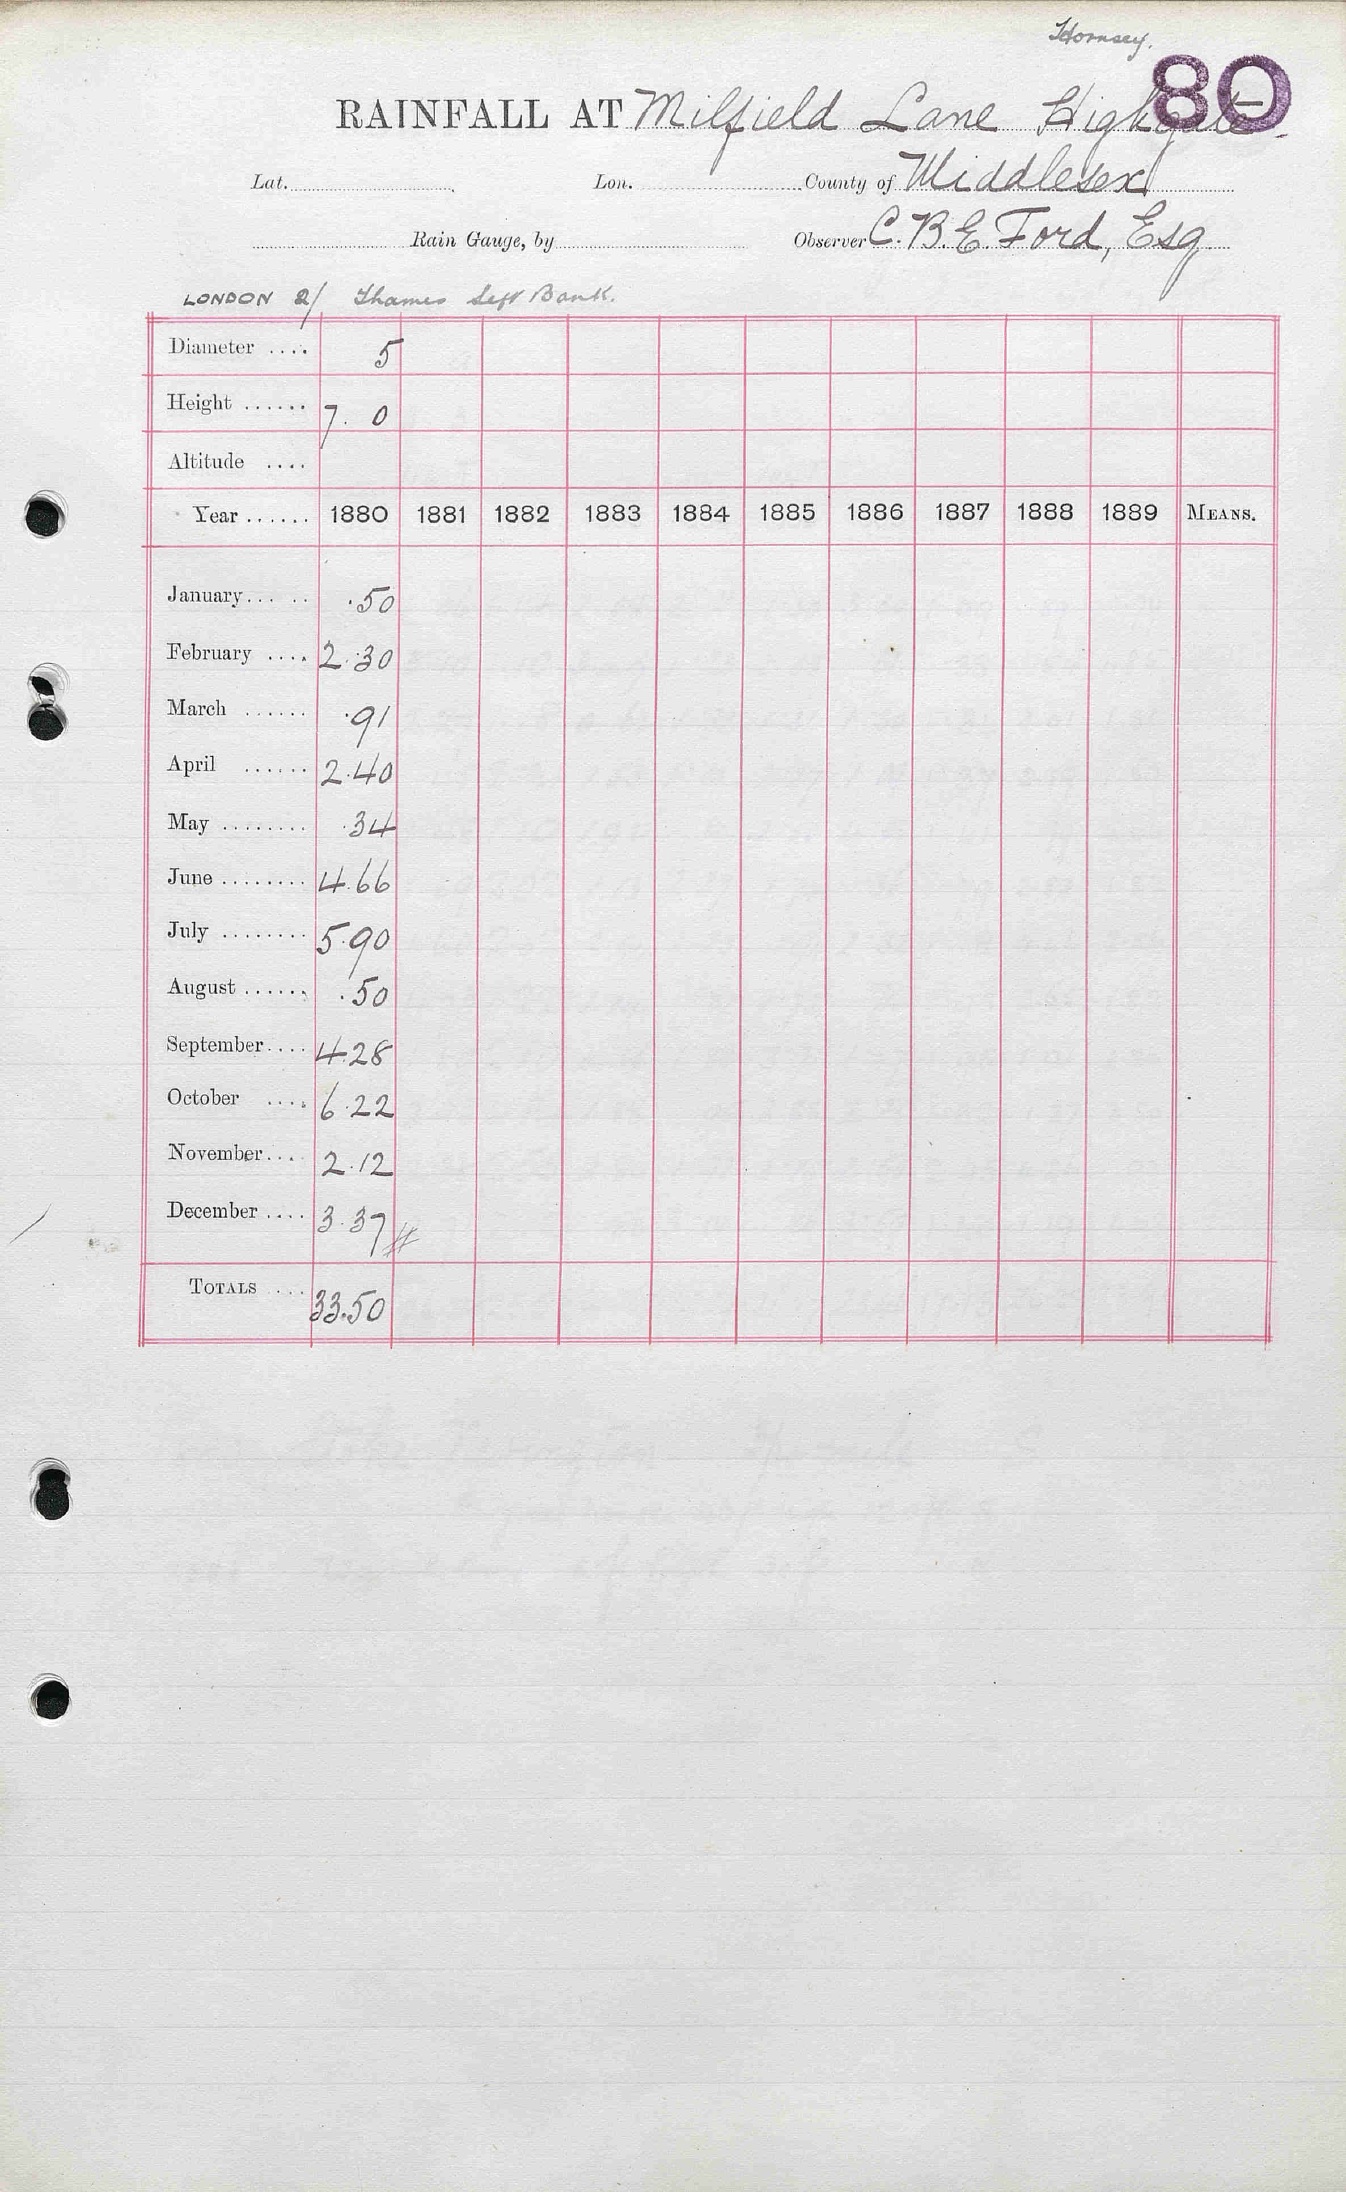 Hornsey.
80
RAINFALL AT Milfield Lane Highgate
Lat. Lon. County of Middlesex
Rain Gauge, by Observer C. B. E. Ford, Esq
LONDON 2/ Thames Left Bank.
Diameter .... 5
Height ...... 7. 0
Altitude ....
Year ...... 1880 1881 1882 1883 1884 1885 1886 1887 1888 1889 MEANS.
January ... .. .50
February .... 2.30
March ...... .91
April ...... 2.40
May ........ .34
June ........ 4.66
July ........ 5.90
August ...... .50
September .... 4.28
October .... 6.22
November .... 2.12
December .... 3.37 #
TOTALS .... 33.50